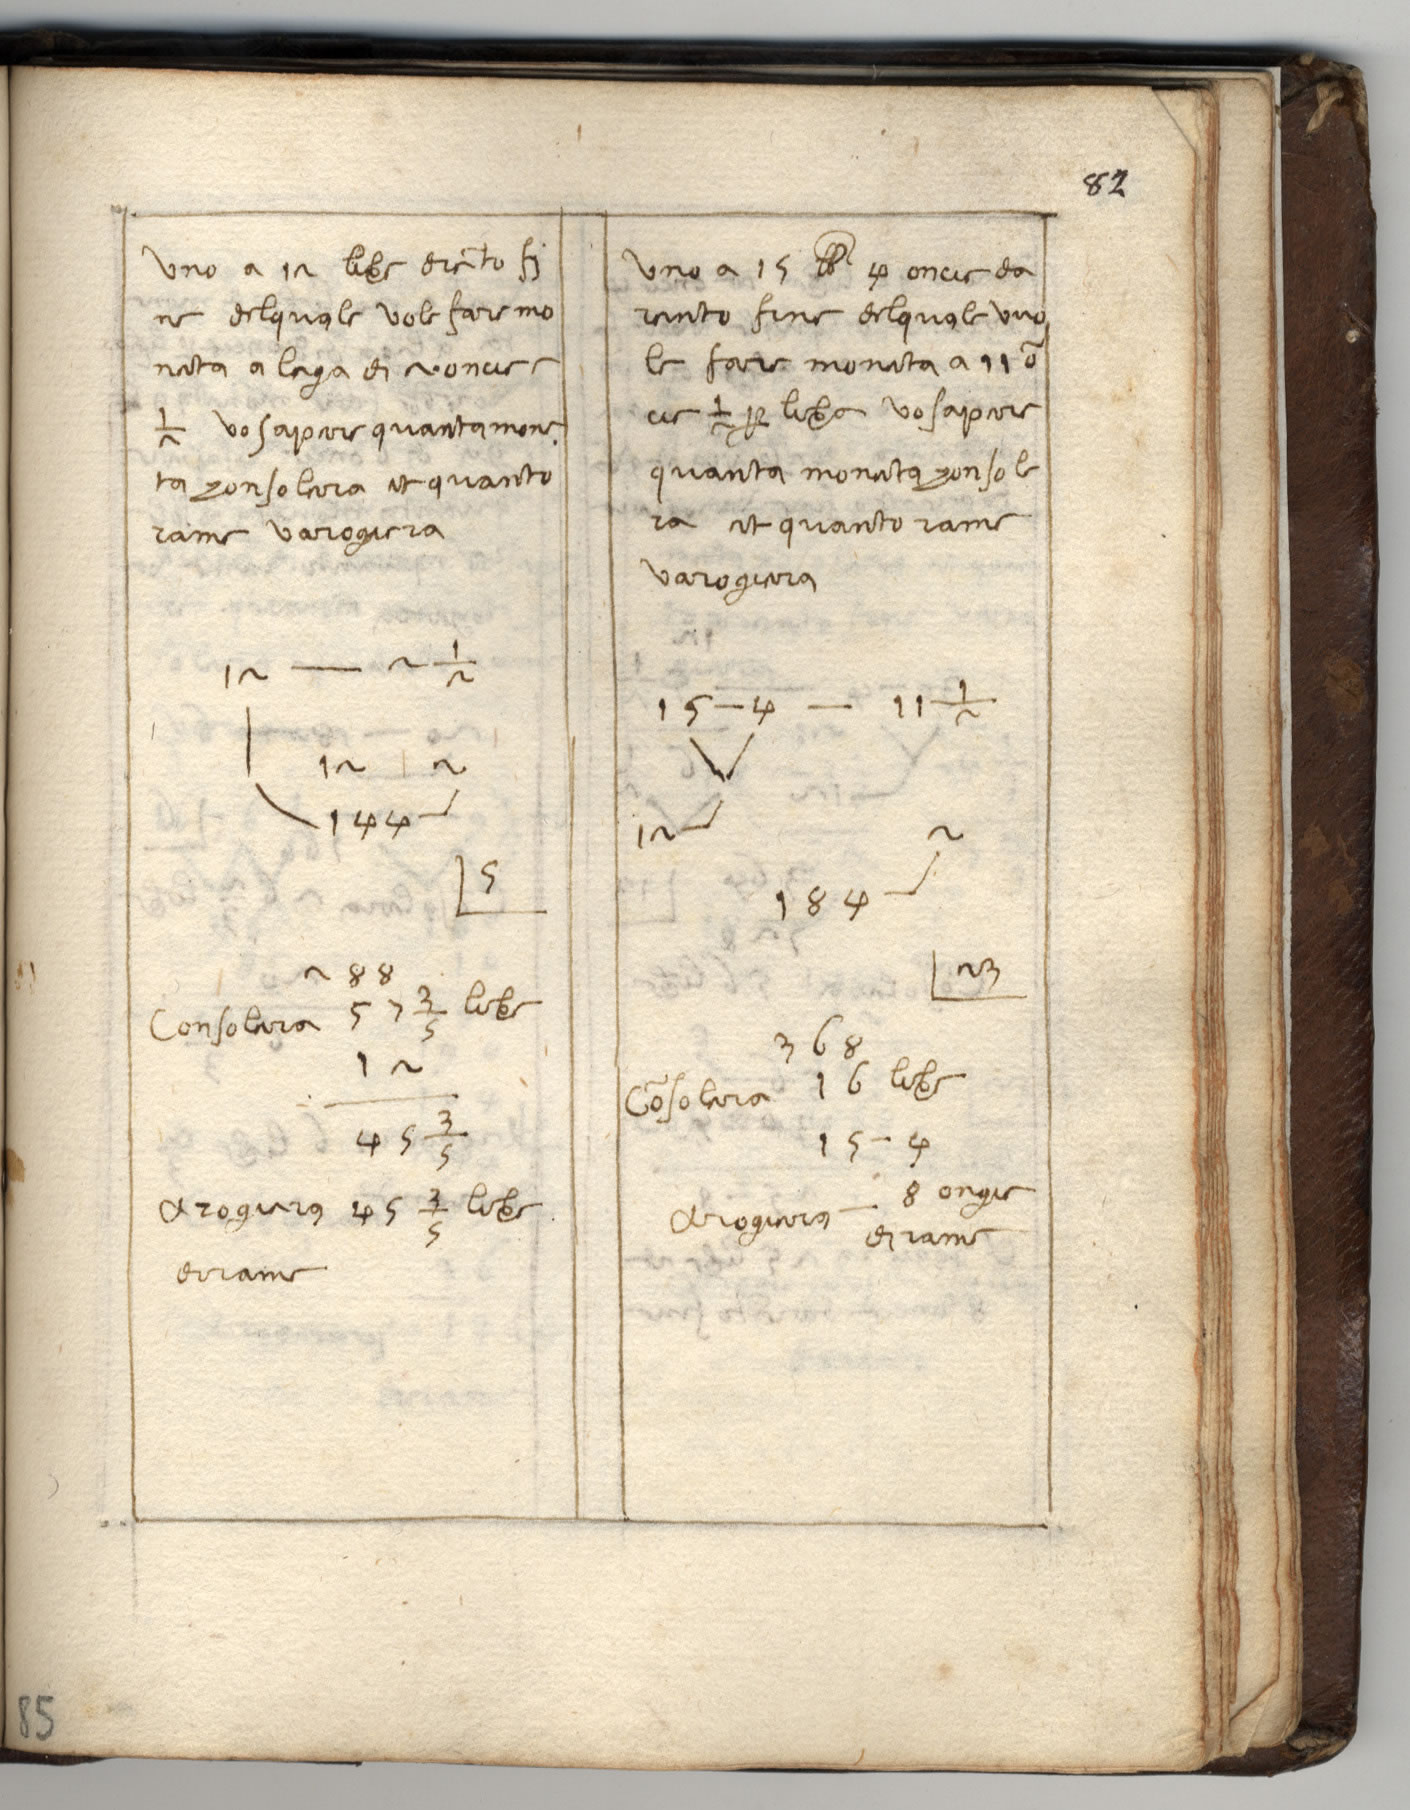 82
Uno a 12 libre arẽto fi
ne delquale vole fare mo
neta a lega di 2 oncie e
1/2 vo sapere quanta mone
ta zonsolera et quanto
rame varogiera
12 — 2 1/2
12 2
144
5
288
Consolera 57 3/5 libre
12
45 3/5
Arogiera 45 3/5 libre
de rame
Uno a 15 lb 4 oncie da
rento fine delquale vuo
le fare moneta a 11 õ
cie 1/2 per libra vo sapere
quanta moneta zonsole
ra et quanto rame
varogiera
15 — 4 — 11 1/2
12 2
184
23
368
Cõsolera 16 libre
15 — 4
Arogiera — 8 ongie
di rame
85